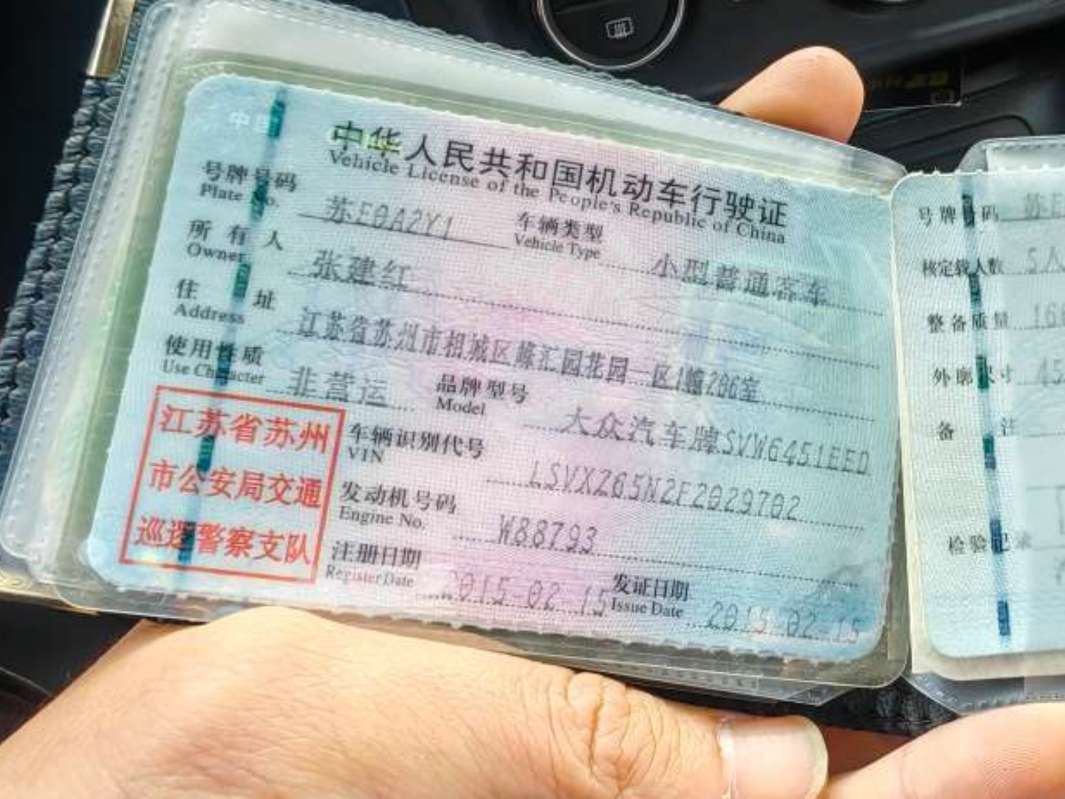 中国
中华人民共和国机动车行驶证
Vehicle License of the People's Republic of China
号牌号码 苏E0A2Y1 车辆类型 小型普通客车
Plate No. Vehicle Type
所有人 张建红
Owner
住址 江苏省苏州市相城区 汇园花园一区1幢206室
Address
使用性质 非营运 品牌型号 大众汽车牌SVW6451EED
Use Character Model
江苏省苏州
市公安局交通
巡逻警察支队
车辆识别代号 LSVXZ65N2F2029702
VIN
发动机号码 W88793
Engine No.
注册日期 2015-02-15 发证日期 2015-02-15
Register Date Issue Date
号牌号码 苏E
核定载人数 5人
整备质量
外廓尺寸 45
备注
检验记录